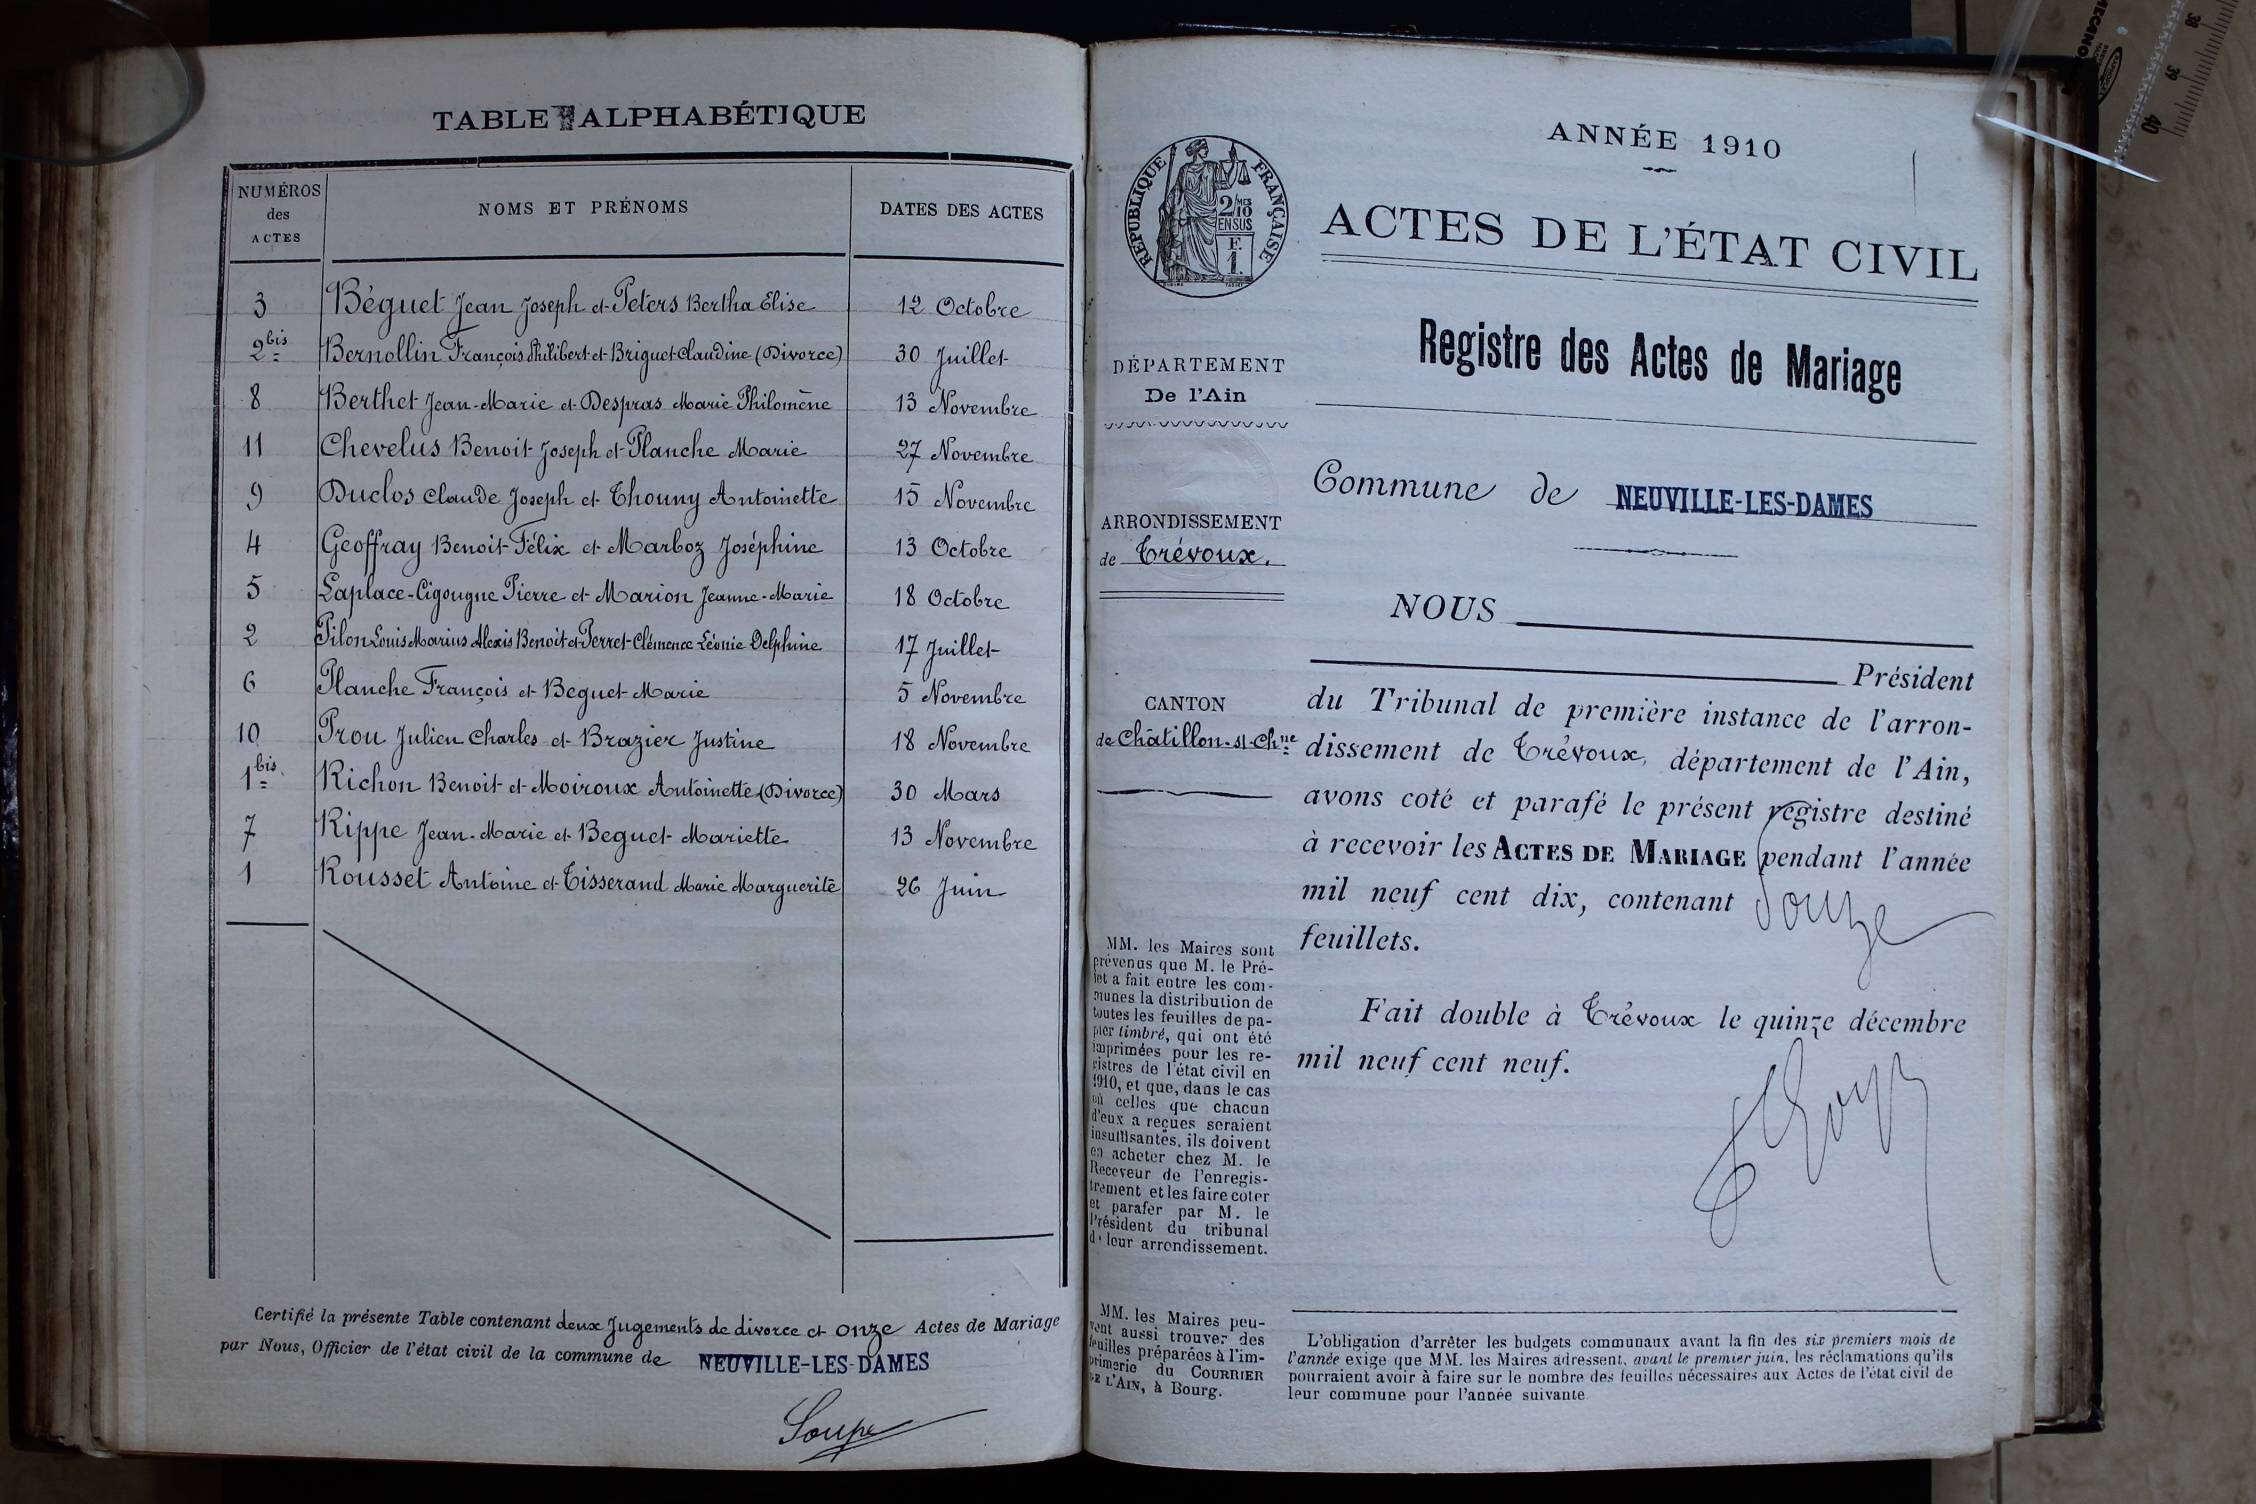 TABLE ALPHABÉTIQUE
NUMÉROS des ACTES NOMS ET PRÉNOMS DATES DES ACTES
3 Béguet Jean Joseph et Peters Bertha Elise 12 Octobre
2bis Bernollin François Philibert et Briguet Claudine (Divorce) 30 Juillet
8 Berthet Jean-Marie et Despras Marie Philomène 13 Novembre
11 Chevelus Benoit Joseph et Planche Marie 27 Novembre
9 Duclos Claude Joseph et Thouny Antoinette 15 Novembre
4 Geoffray Benoit Félix et Marboz Joséphine 13 Octobre
5 Laplace-Cigougne Pierre et Marion Jeanne-Marie 18 Octobre
2 Pilon Louis Marius Alexis Benoit et Perret Clémence Léonie Delphine 17 Juillet
6 Planche François et Beguet Marie 5 Novembre
10 Prou Julien Charles et Brazier Justine 18 Novembre
1bis Richon Benoit et Moiroux Antoinette (Divorce) 30 Mars
7 Rippe Jean-Marie et Beguet Mariette 13 Novembre
1 Rousset Antoine et Tisserand Marie Marguerite 26 Juin
Certifié la présente Table contenant deux Jugements de divorce et onze Actes de Mariage
par Nous, Officier de l'état civil de la commune de NEUVILLE-LES-DAMES
Soupe
RÉPUBLIQUE FRANÇAISE
2/10 MES
EN SUS
F.
1.
DÉPARTEMENT
De l'Ain
ARRONDISSEMENT
de Trévoux.
CANTON
de Châtillon-s-Chne
MM. les Maires sont
prévenus que M. le Pré-
fet a fait entre les com-
munes la distribution de
toutes les feuilles de pa-
pier timbré, qui ont été
imprimées pour les re-
gistres de l'état civil en
1910, et que, dans le cas
où celles que chacun
d'eux a reçues seraient
insuffisantes, ils doivent
en acheter chez M. le
Receveur de l'enregis-
trement et les faire coter
et parafer par M. le
Président du tribunal
de leur arrondissement.
MM. les Maires peu-
vent aussi trouver des
feuilles préparées à l'im-
primerie du COURRIER
DE L'AIN, à Bourg.
ANNÉE 1910
ACTES DE L'ÉTAT CIVIL
Registre des Actes de Mariage
Commune de NEUVILLE-LES-DAMES
NOUS
Président
du Tribunal de première instance de l'arron-
dissement de Trévoux, département de l'Ain,
avons coté et parafé le présent registre destiné
à recevoir les ACTES DE MARIAGE pendant l'année
mil neuf cent dix, contenant douze
feuillets.
Fait double à Trévoux le quinze décembre
mil neuf cent neuf.
L'obligation d'arrêter les budgets communaux avant la fin des six premiers mois de
l'année exige que MM. les Maires adressent, avant le premier juin, les réclamations qu'ils
pourraient avoir à faire sur le nombre des feuilles nécessaires aux Actes de l'état civil de
leur commune pour l'année suivante
38
39
40